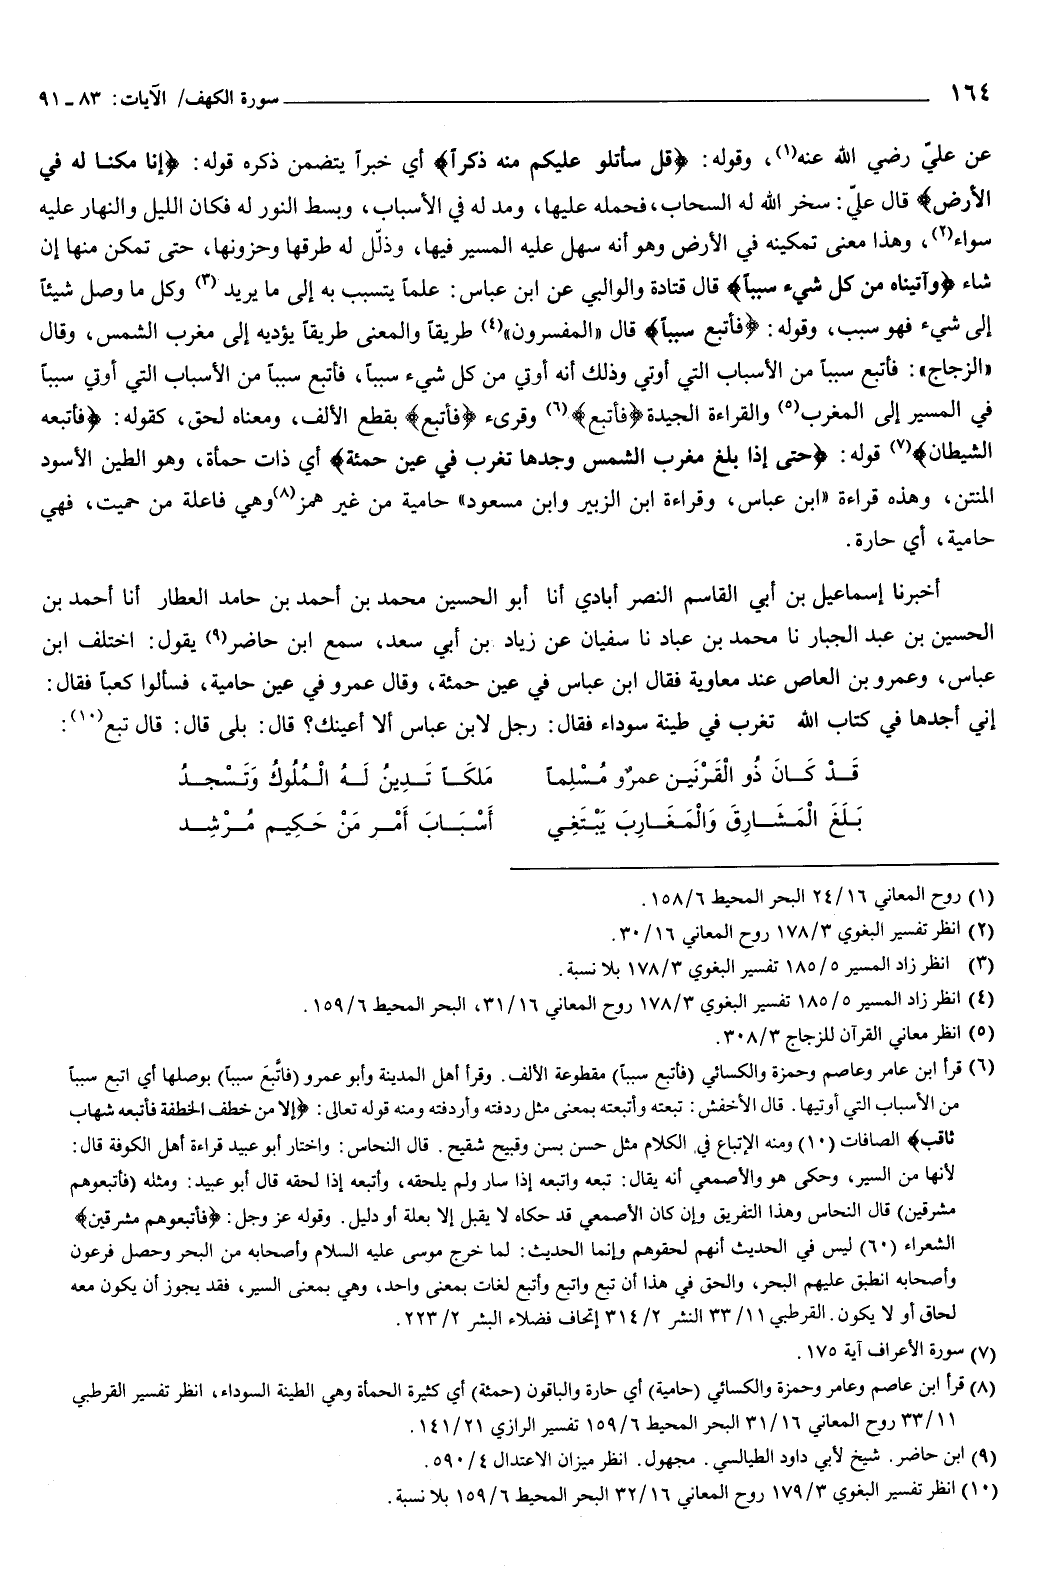 ١٦٤ ـــــــ سورة الكهف/ الآيات: ٨٣ ـ ٩١
عن عليّ رضي الله عنه(١)، وقوله: ﴿قل سأتلو عليكم منه ذكراً﴾ أي خبراً يتضمن ذكره قوله: ﴿إنا مكنا له في
الأرض﴾ قال عليّ: سخر الله له السحاب، فحمله عليها، ومد له في الأسباب، وبسط النور له فكان الليل والنهار عليه
سواء(٢)، وهذا معنى تمكينه في الأرض وهو أنه سهل عليه المسير فيها، وذلّل له طرقها وحزونها، حتى تمكن منها إن
شاء ﴿وآتيناه من كل شيء سبباً﴾ قال قتادة والوالبي عن ابن عباس: علماً يتسبب به إلى ما يريد (٣) وكل ما وصل شيئاً
إلى شيء فهو سبب، وقوله: ﴿فأتبع سبباً﴾ قال «المفسرون»(٤) طريقاً والمعنى طريقاً يؤديه إلى مغرب الشمس، وقال
«الزجاج»: فأتبع سبباً من الأسباب التي أوتي وذلك أنه أوتي من كل شيء سبباً، فأتبع سبباً من الأسباب التي أوتي سبباً
في المسير إلى المغرب(٥) والقراءة الجيدة ﴿فأتبع﴾(٦) وقرىء ﴿فأتبع﴾ بقطع الألف، ومعناه لحق، كقوله: ﴿فأتبعه
الشيطان﴾(٧) قوله: ﴿حتى إذا بلغ مغرب الشمس وجدها تغرب في عين حمئة﴾ أي ذات حمأة، وهو الطين الأسود
المنتن، وهذه قراءة «ابن عباس، وقراءة ابن الزبير وابن مسعود» حامية من غير همز(٨) وهي فاعلة من حميت، فهي
حامية، أي حارة.
أخبرنا إسماعيل بن أبي القاسم النصر أبادي أنا أبو الحسين محمد بن أحمد بن حامد العطار أنا أحمد بن
الحسين بن عبد الجبار نا محمد بن عباد نا سفيان عن زياد بن أبي سعد، سمع ابن حاضر(٩) يقول: اختلف ابن
عباس، وعمرو بن العاص عند معاوية فقال ابن عباس في عين حمئة، وقال عمرو في عين حامية، فسألوا كعباً فقال:
إني أجدها في كتاب الله تغرب في طينة سوداء فقال: رجل لابن عباس ألا أعينك؟ قال: بلى قال: قال تبع(١٠):
قَــدْ كَــانَ ذُو الْقَرْنَيــن عمرٌو مُسْلِماً مَلكَــاً تَــدِينُ لَــهُ الْمُلُوكُ وَتَسْجــدُ
بَلَغَ الْمَشَــارِقَ وَالْمَغَــارِبَ يَبْتَغِي أَسْبَــابَ أَمْــرٍ مَنْ حَكِيــم مُــرْشِدِ
(١) روح المعاني ٢٤/١٦ البحر المحيط ١٥٨/٦.
(٢) انظر تفسير البغوي ١٧٨/٣ روح المعاني ٣٠/١٦.
(٣) انظر زاد المسير ١٨٥/٥ تفسير البغوي ١٧٨/٣ بلا نسبة.
(٤) انظر زاد المسير ١٨٥/٥ تفسير البغوي ١٧٨/٣ روح المعاني ٣١/١٦، البحر المحيط ١٥٩/٦.
(٥) انظر معاني القرآن للزجاج ٣٠٨/٣.
(٦) قرأ ابن عامر وعاصم وحمزة والكسائي (فأتبع سبباً) مقطوعة الألف. وقرأ أهل المدينة وأبو عمرو (فاتَّبعَ سبباً) بوصلها أي اتبع سبباً
من الأسباب التي أوتيها. قال الأخفش: تبعته وأتبعته بمعنى مثل ردفته وأردفته ومنه قوله تعالى: ﴿إلا من خطف الخطفة فأتبعه شهاب
ثاقب﴾ الصافات (١٠) ومنه الإتباع في الكلام مثل حسن بسن وقبيح شقيح. قال النحاس: واختار أبو عبيد قراءة أهل الكوفة قال:
لأنها من السير، وحكى هو والأصمعي أنه يقال: تبعه واتبعه إذا سار ولم يلحقه، وأتبعه إذا لحقه قال أبو عبيد: ومثله (فأتبعوهم
مشرقين) قال النحاس وهذا التفريق وإن كان الأصمعي قد حكاه لا يقبل إلا بعلة أو دليل. وقوله عز وجل: ﴿فأتبعوهم مشرقين﴾
الشعراء (٦٠) ليس في الحديث أنهم لحقوهم وإنما الحديث: لما خرج موسى عليه السلام وأصحابه من البحر وحصل فرعون
وأصحابه انطبق عليهم البحر، والحق في هذا أن تبع واتبع وأتبع لغات بمعنى واحد، وهي بمعنى السير، فقد يجوز أن يكون معه
لحاق أو لا يكون. القرطبي ٣٣/١١ النشر ٣١٤/٢ إتحاف فضلاء البشر ٢٢٣/٢.
(٧) سورة الأعراف آية ١٧٥.
(٨) قرأ ابن عاصم وعامر وحمزة والكسائي (حامية) أي حارة والباقون (حمئة) أي كثيرة الحمأة وهي الطينة السوداء، انظر تفسير القرطبي
٣٣/١١ روح المعاني ٣١/١٦ البحر المحيط ١٥٩/٦ تفسير الرازي ١٤١/٢١.
(٩) ابن حاضر. شيخ لأبي داود الطيالسي. مجهول. انظر ميزان الاعتدال ٥٩٠/٤.
(١٠) انظر تفسير البغوي ١٧٩/٣ روح المعاني ٣٢/١٦ البحر المحيط ١٥٩/٦ بلا نسبة.